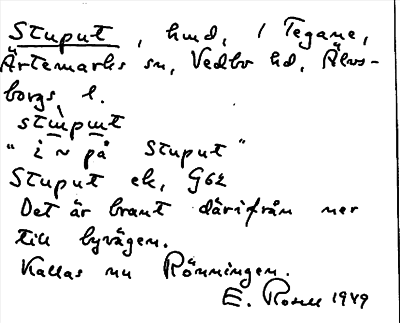 Stuput, hmd, / Tegane,
Ärtemarks sn, Vedbo hd, Älvs-
borgs l.
stɯpɯt
" i ~ på Stuput"
Stuput ek, G62
Det är brant därifrån ner
till byvägen.
Kallas nu Rönningen.
E. 1949